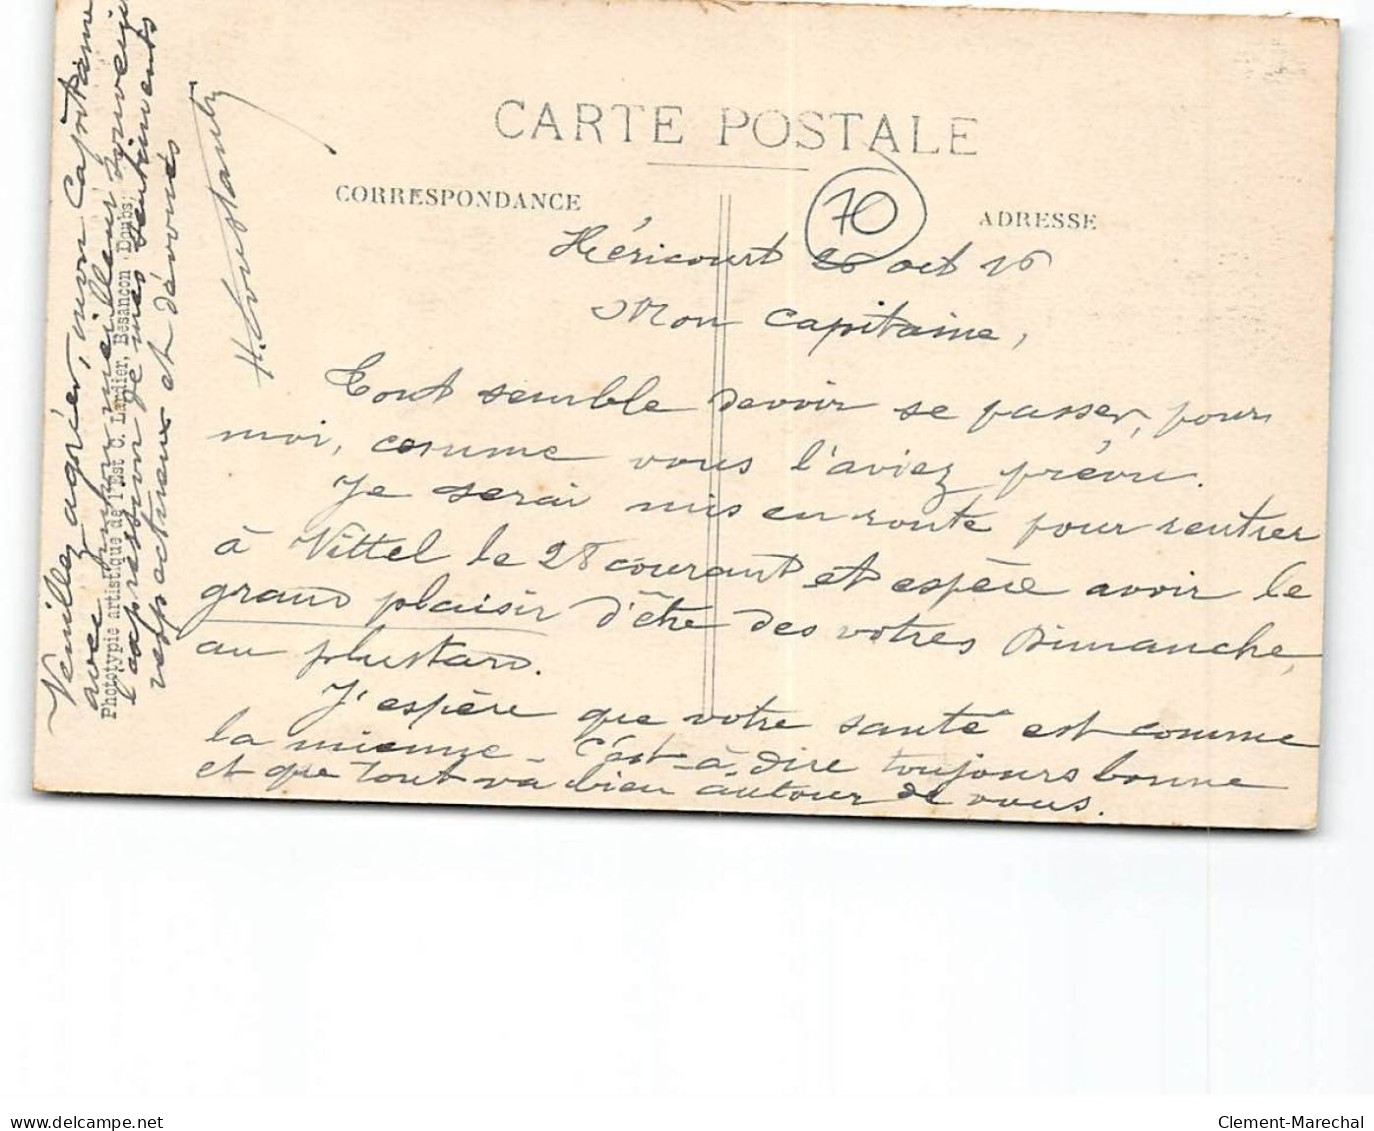 CARTE POSTALE
CORRESPONDANCE
ADRESSE
70
Héricourt 26 oct 16
Mon Capitaine,
Tout semble devoir se passer, pour
moi, comme vous l'aviez prévu.
Je serai mis en route pour rentrer
à Vittel le 28 courant et espère avoir le
grand plaisir d'être des vôtres Dimanche,
au plus tard.
J'espère que votre santé est comme
la mienne - c'est-à-dire toujours bonne
et que tout va bien autour de vous.
Veuillez agréer, mon Capitaine
avec meilleur souvenir
l'expression de mes sentiments
respectueux et dévoués
Phototypie artistique de l'Est C. Lardier, Besançon (Doubs)
delcampe.net
Clement-Marechal